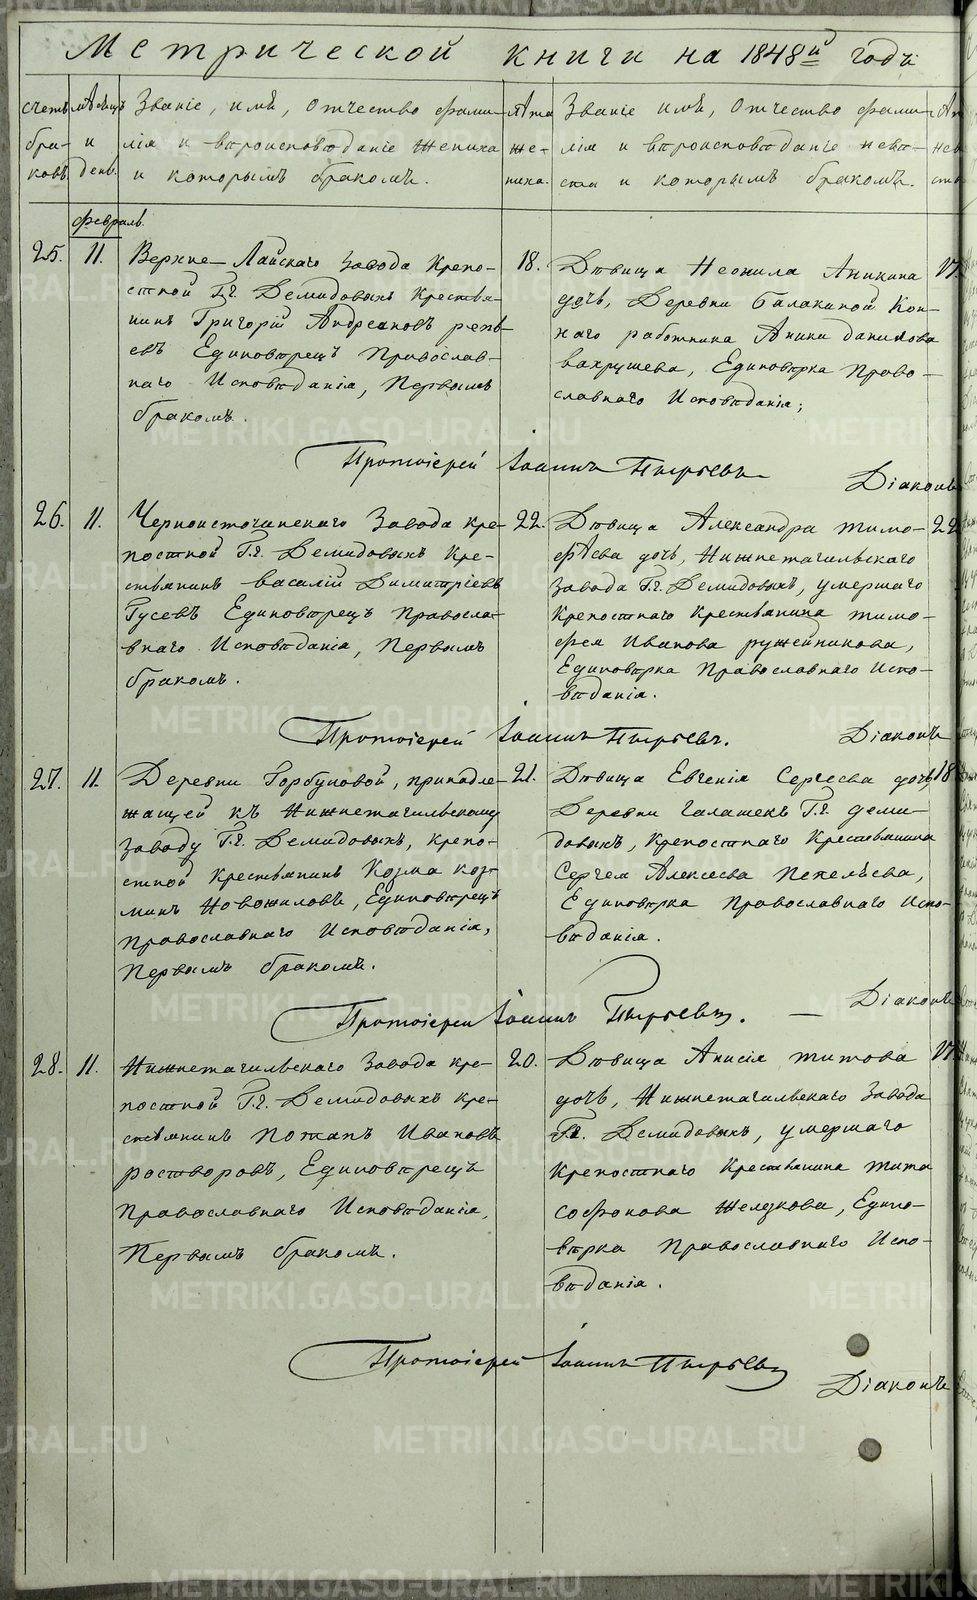 Метрической книги на 1848й годъ
счетъ браковъ
мѣсяцъ и день.
Званіе, имя, отчество фамилія и вѣроисповѣданіе жениха и которымъ бракомъ.
Лѣта жениха.
Званіе имя, отчество фамилія и вѣроисповѣданіе невѣсты и которымъ бракомъ.
февраль.
25. 11.
Верхне-Лайскаго завода Крепо-
стной Г.г. Демидовыхъ Крестья-
нинъ Григорій Андреановъ
евъ Единовѣрецъ Православ-
наго Исповѣданія, Первымъ
бракомъ.
18.
Дѣвица Неонила Аникина
дочь, Деревни Балакиной Кон-
наго работника Аники данилова
Вахрушева, Единовѣрка Право-
славнаго Исповѣданія;
17.
Протоіерей Іоаннъ Пырьевъ
Діаконъ
26. 11.
Черноисточинскаго Завода кре-
постной Г.г. Демидовыхъ Кре-
стьянинъ василій Димитріевъ
Гусевъ Единовѣрецъ Правосла-
внаго Исповѣданія, Первымъ
бракомъ.
22.
Дѣвица Александра тимо-
фѣева дочь, Нижнетагильскаго
завода Г.г. Демидовыхъ, умершаго
Крепостнаго Крестьянина тимо-
фея Иванова ружейникова,
Единовѣрка Православнаго Испо-
вѣданія.
22
Протоіерей Іоаннъ Пырьевъ.
Діаконъ
27. 11.
Деревни Горбуновой, принадле-
жащей къ Нижнетагильскому
заводу Г.г. Демидовыхъ, крепо-
стной Крестьянинъ Козма коз-
минъ Новожиловъ, Единовѣрецъ
Православнаго Исповѣданія,
Первымъ бракомъ.
21.
Дѣвица Евгенія Сергеева дочь,
Деревни Галашекъ Г.г. деми-
довыхъ, Крепостнаго Крестьянина
Сергея Алексеева Пепелѣева,
Единовѣрка Православнаго Испо-
вѣданія.
18
Протоіерей Іоаннъ Пырьевъ.
Діаконъ
28. 11.
Нижнетагильскаго Завода кре-
постной Г.г. Демидовыхъ кре-
стьянинъ Потапъ Ивановъ
растворовъ, Единовѣрецъ
Православнаго Исповѣданія,
Первымъ бракомъ.
20.
Дѣвица Анисія титова
дочь, Нижнетагильскаго завода
Г.г. Демидовыхъ, умершаго
Крепостнаго Крестьянина тита
софонова Желѣзкова, Едино-
вѣрка Православнаго Испо-
вѣданія.
17.
Протоіерей Іоаннъ Пырьевъ
Діаконъ
METRIKI.GASO-URAL.RU